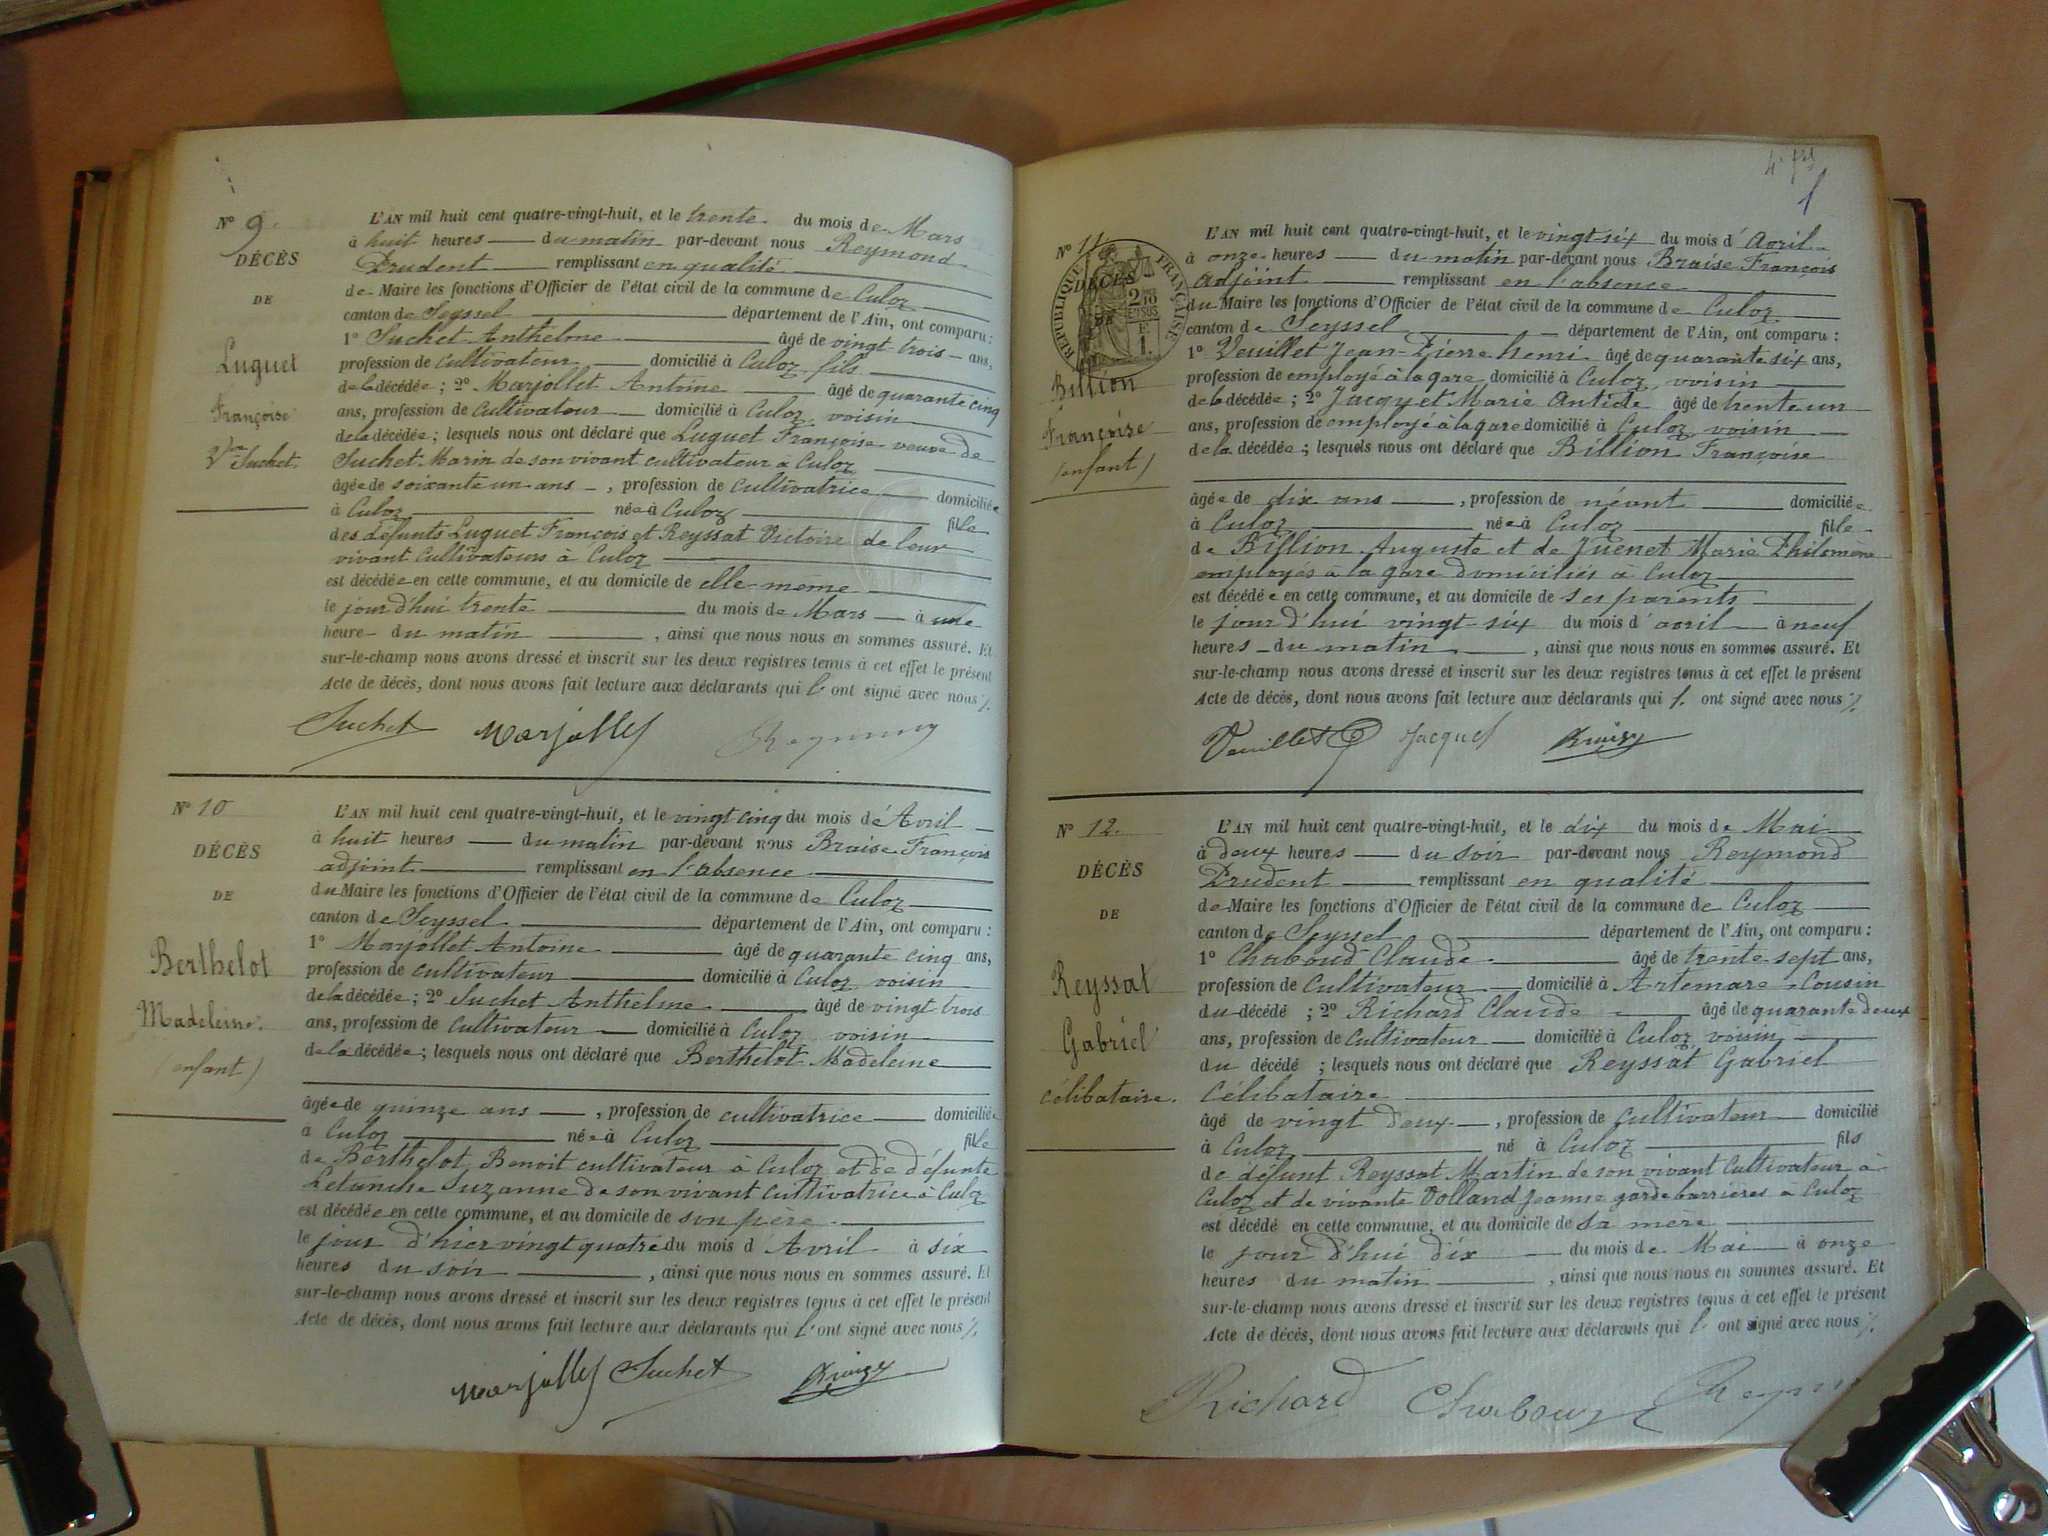 N° 9.
DÉCÈS
DE
Luguet
Françoise
Vve Suchet.
L'AN mil huit cent quatre-vingt-huit, et le trente. du mois de Mars
à huit heures du matin par-devant nous Reymond
Prudent remplissant en qualité
de Maire les fonctions d'Officier de l'état civil de la commune de Culoz
canton de Seyssel département de l'Ain, ont comparu :
1° Suchet Anthelme âgé de vingt-trois ans,
profession de cultivateur domicilié à Culoz fils
de la décédée ; 2° Marjollet Antoine âgé de quarante cinq
ans, profession de Cultivateur domicilié à Culoz voisin
de la décédée ; lesquels nous ont déclaré que Luguet Françoise veuve de
Suchet Marin de son vivant cultivateur à Culoz
âgée de soixante un ans , profession de cultivatrice domiciliée
à Culoz née à Culoz fille
des défunts Luguet François et Reyssat Victoire de leur
vivant cultivateurs à Culoz
est décédée en cette commune, et au domicile de elle-meme
le jour d'hui trente du mois de Mars à une
heure du matin , ainsi que nous nous en sommes assuré. Et
sur-le-champ nous avons dressé et inscrit sur les deux registres tenus à cet effet le présent
Acte de décès, dont nous avons fait lecture aux déclarants qui l' ont signé avec nous ./.
Suchet Marjollet Reymond
N° 10
DÉCÈS
DE
Berthelot
Madeleine.
(enfant)
L'AN mil huit cent quatre-vingt-huit, et le vingt cinq du mois d'Avril
à huit heures du matin par-devant nous Braise François
adjoint remplissant en l'absence
du Maire les fonctions d'Officier de l'état civil de la commune de Culoz
canton de Seyssel département de l'Ain, ont comparu :
1° Marjollet Antoine âgé de quarante cinq ans,
profession de cultivateur domicilié à Culoz voisin
de la décédée ; 2° Suchet Anthelme âgé de vingt trois
ans, profession de cultivateur domicilié à Culoz voisin
de la décédée ; lesquels nous ont déclaré que Berthelot Madeleine
âgée de quinze ans , profession de cultivatrice domiciliée
à Culoz née à Culoz fille
de Berthelot Benoit cultivateur à Culoz et de défunte
Suzanne de son vivant cultivatrice à Culoz
est décédée en cette commune, et au domicile de son père
le jour d'hier vingt quatre du mois d'Avril à six
heures du soir , ainsi que nous nous en sommes assuré. Et
sur-le-champ nous avons dressé et inscrit sur les deux registres tenus à cet effet le présent
Acte de décès, dont nous avons fait lecture aux déclarants qui l' ont signé avec nous ./.
Marjollet Suchet
N° 11.
RÉPUBLIQUE FRANÇAISE
DÉCÈS
DE
Billion
Françoise
(enfant)
L'AN mil huit cent quatre-vingt-huit, et le vingt six du mois d'avril
à onze heures du matin par-devant nous Braise François
adjoint remplissant en l'absence
du Maire les fonctions d'Officier de l'état civil de la commune de Culoz
canton de Seyssel département de l'Ain, ont comparu :
1° Veuillet Jean-Pierre henri âgé de quarante six ans,
profession de employé à la gare domicilié à Culoz voisin
de la décédée ; 2° Jacquet Marie Antide âgé de trente un
ans, profession de employé à la gare domicilié à Culoz voisin
de la décédée ; lesquels nous ont déclaré que Billion Françoise
âgée de dix ans , profession de néant domiciliée
à Culoz née à Culoz fille
de Billion Auguste et de Juenet Marie Philomène
employés à la gare domiciliés à Culoz
est décédée en cette commune, et au domicile de ses parents
le jour d'hui vingt-six du mois d'avril à neuf
heures du matin , ainsi que nous nous en sommes assuré. Et
sur-le-champ nous avons dressé et inscrit sur les deux registres tenus à cet effet le présent
Acte de décès, dont nous avons fait lecture aux déclarants qui l' ont signé avec nous ./.
Veuillet Jacquet
N° 12.
DÉCÈS
DE
Reyssat
Gabriel
célibataire.
L'AN mil huit cent quatre-vingt-huit, et le dix du mois de Mai
à deux heures du soir par-devant nous Reymond
Prudent remplissant en qualité
de Maire les fonctions d'Officier de l'état civil de la commune de Culoz
canton de Seyssel département de l'Ain, ont comparu :
1° Chaboud Claude âgé de trente-sept ans,
profession de Cultivateur domicilié à Artemare Cousin
du décédé ; 2° Richard Claude âgé de quarante deux
ans, profession de Cultivateur domicilié à Culoz voisin
du décédé ; lesquels nous ont déclaré que Reyssat Gabriel
Célibataire
âgé de vingt deux , profession de cultivateur domicilié
à Culoz né à Culoz fils
de défunt Reyssat Martin de son vivant Cultivateur à
Culoz et de vivante Volland Jeanne garde barrières à Culoz
est décédé en cette commune, et au domicile de sa mère
le jour d'hui dix du mois de Mai à onze
heures du matin , ainsi que nous nous en sommes assuré. Et
sur-le-champ nous avons dressé et inscrit sur les deux registres tenus à cet effet le présent
Acte de décès, dont nous avons fait lecture aux déclarants qui l' ont signé avec nous ./.
Richard Chaboud